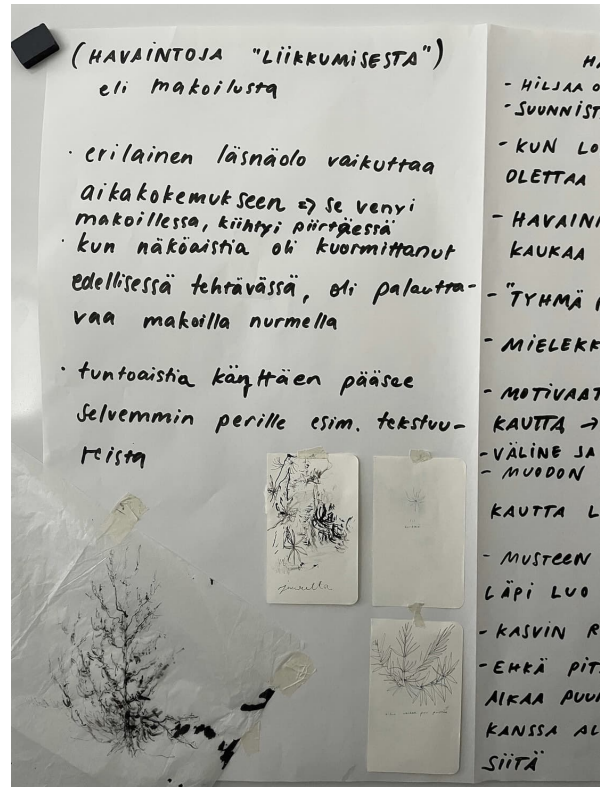 (HAVAINTOJA "LIIKKUMISESTA")
eli makoilusta
· erilainen läsnäolo vaikuttaa
aikakokemukseen => se venyi
makoillessa, kiihtyi piirtäessä
· kun näköaistia oli kuormittanut
edellisessä tehtävässä, oli palautta-
vaa makoilla nurmella
· tuntoaistia käyttäen pääsee
selvemmin perille esim. tekstuu-
reista
HA
- HILJAA O
- SUUNNIST
- KUN LO
OLETTAA
- HAVAINN
KAUKAA
- "TYHMÄ P
- MIELEKK
- MOTIVAAT
KAUTTA →
- VÄLINE JA
- MUODON
KAUTTA L
- MUSTEEN
LÄPI LUO
- KASVIN R
- EHKÄ PIT
AIKAA PUUN
KANSSA AL
SIITÄ